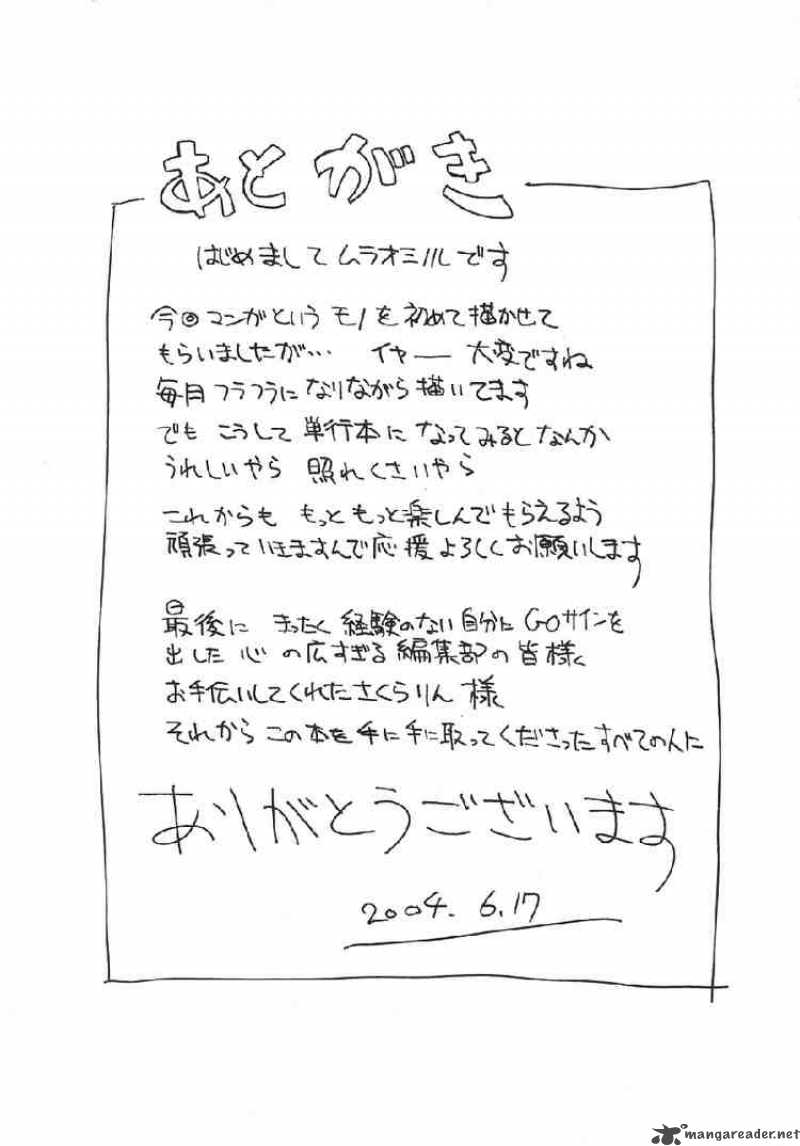 あとがき
はじめまして ムラオミノルです
今回マンガという モノを初めて描かせて
もらいましたが… イヤー 大変ですね
毎月フラフラになりながら描いてます
でも こうして 単行本に なってみると なんか
うれしいやら 照れくさいやら
これからも もっと もっと楽しんでもらえるよう
頑張っていきますんで応援よろしくお願いします
最後に まったく 経験のない自分にGOサインを
出した 心 の広すぎる編集部の皆様
お手伝いしてくれたさくらりん 様
それから この本を手に手に取ってくださったすべての人に
ありがとうございます
2004. 6.17
mangareader.net